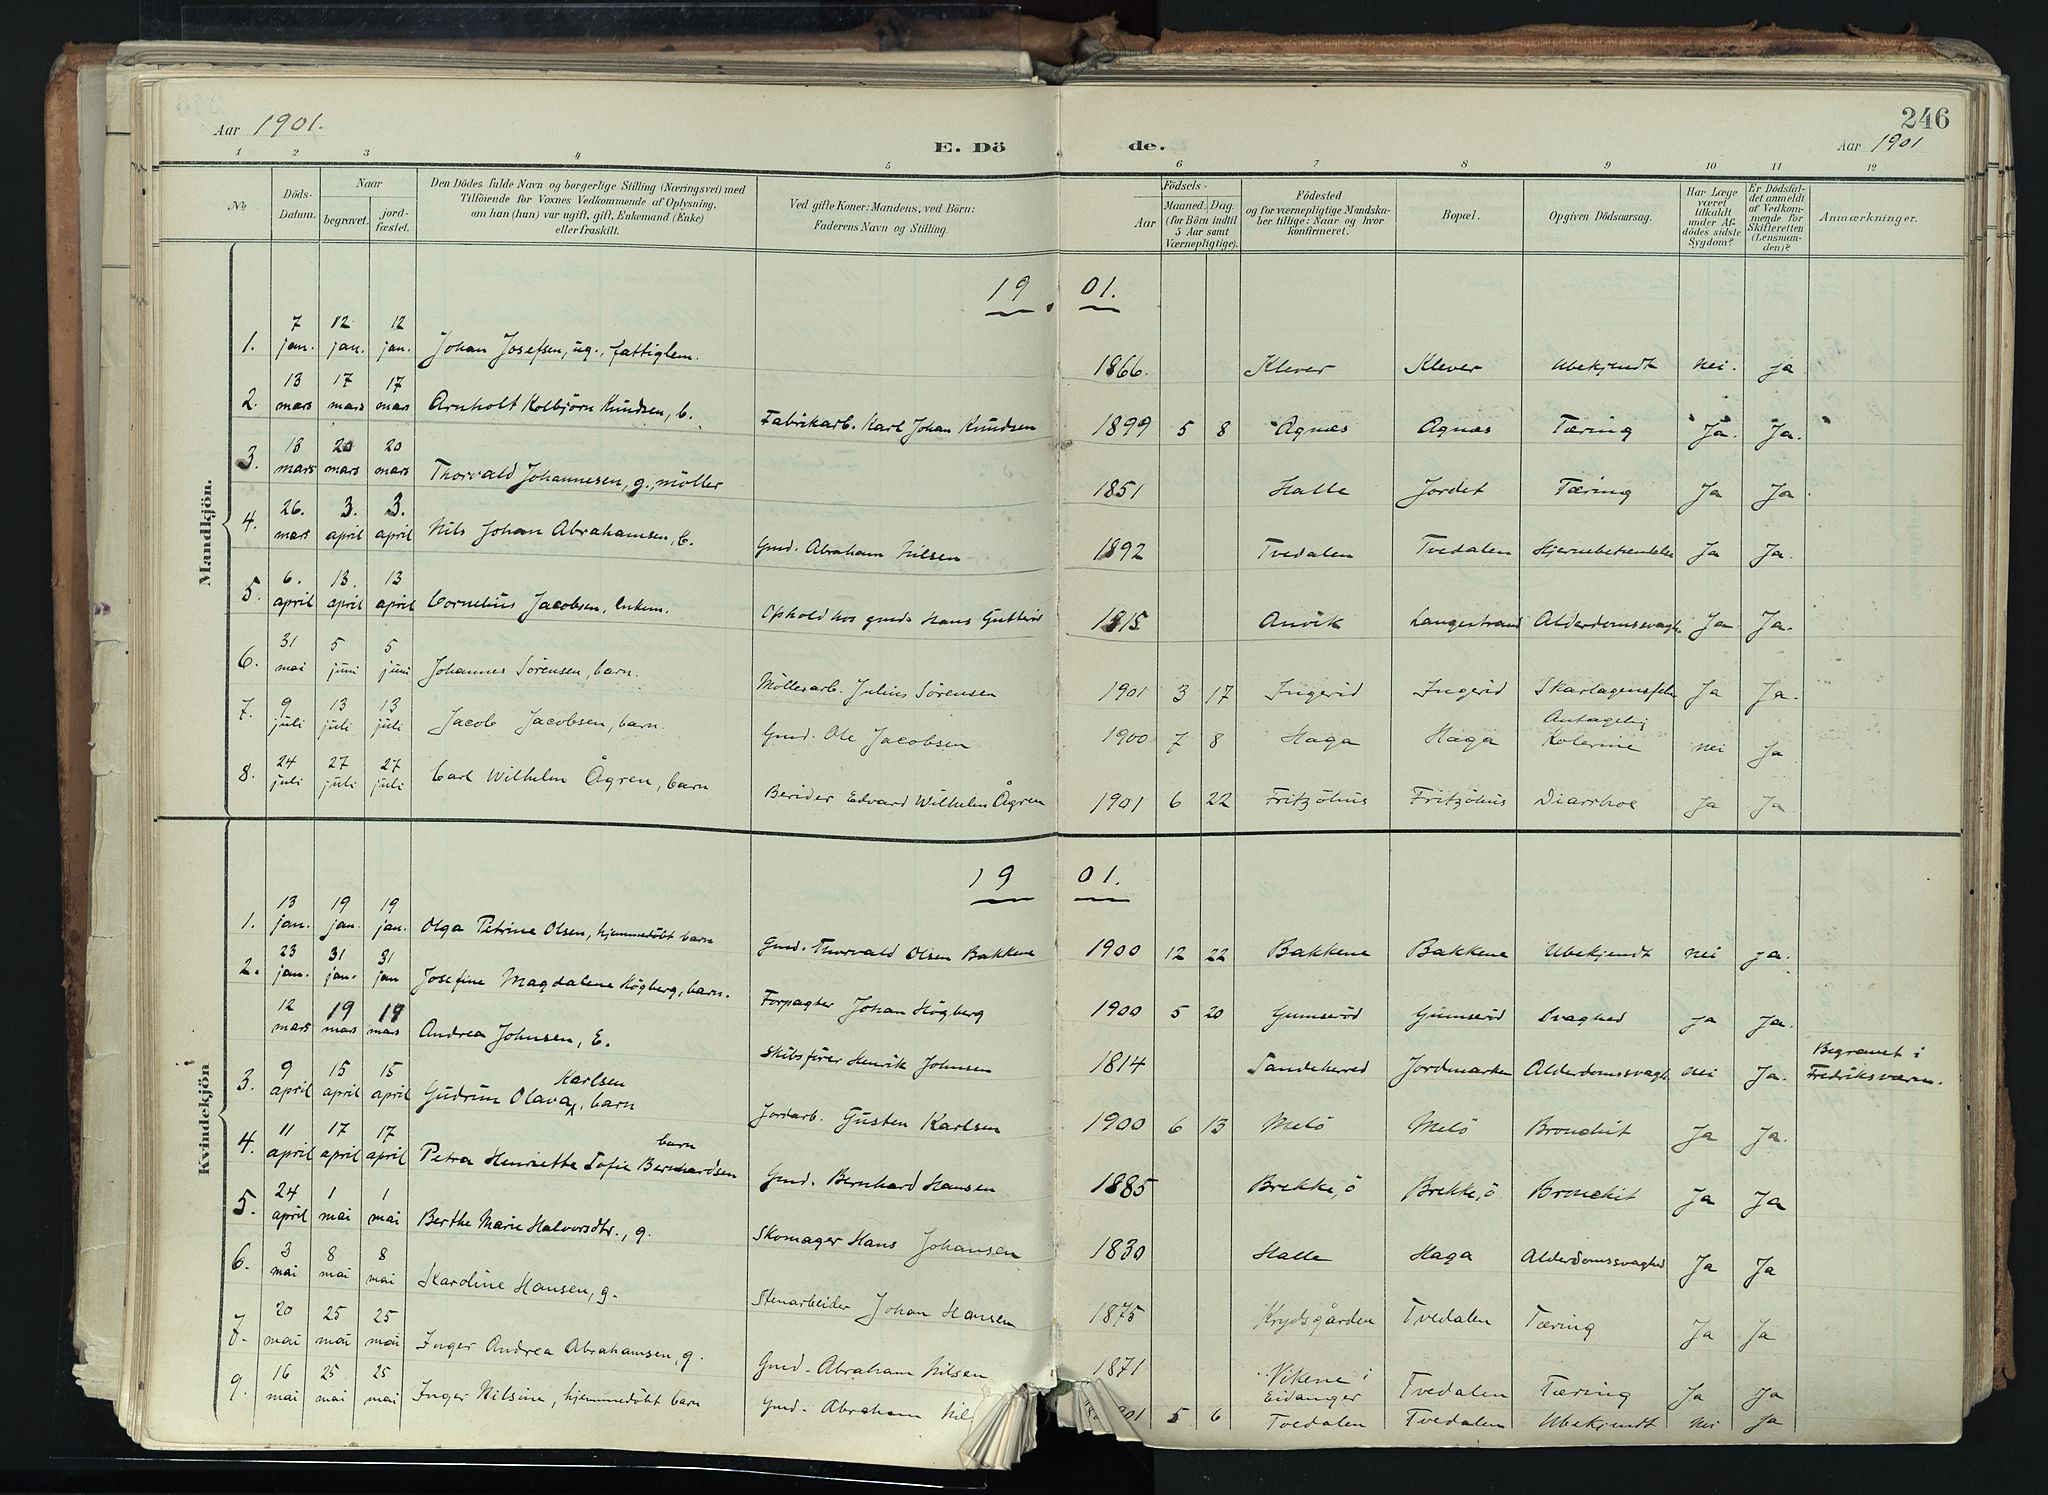 246
Aar 1901. Aar 1901
E. Döde.
1 2 3 4 5 6 7 8 9 10 11 12
No.
Döds-Datum.
Naar
begravet. jordfæstet.
Den Dödes fulde Navn og borgerlige Stilling (Næringsvei) med
Tilföiende for Voxnes Vedkommende af Oplysning,
om han (hun) var ugift, gift, Enkemand (Enke)
eller fraskilt.
Ved gifte Koner: Mandens, ved Börn:
Faderens Navn og Stilling.
Födsels-
Aar Maaned. Dag.
(for Börn indtil
5 Aar samt
Værnepligtige).
Födested
og for værnepligtige Mandskaber tillige: Naar og hvor
konfirmeret.
Bopæl.
Opgiven Dödsaarsag.
Har Læge
været
tilkaldt
under Afdödes sidste
Sygdom?
Er Dödsfaldet anmeldt
af Vedkommende for
Skifteretten
(Lensmanden)?
Anmærkninger.
Mandkjön.
19 01.
1. 7 jan. 12 jan. 12 jan. Johan Josefsen, ug., fattiglem. 1866. Klever Klever Ubekjendt nei. ja
2. 13 mars 17 mars 17 mars Arnholt Kolbjörn Knudsen, b. Fabrikarb. Karl Johan Knudsen 1899 5 8 Agnæs Agnæs Tæring Ja. Ja.
3. 13 mars 20 mars 20 mars Thorvald Johannesen, g., möller 1851 Halle Jordet Tæring Ja Ja.
4. 26. mars 3. april 3. april Nils Johan Abrahamsen, b. Gmd. Abraham Nilsen 1892 Tvedalen Tvedalen Hjernebetændelse Ja Ja.
5. 6. april 13. april 13 april Cornelius Jacobsen, Enkem. Ophold hos gmd. Hans 1815 Anvik Langestrand Alderdomssvagh. Ja Ja.
6. 31 mai 5 juni 5 juni Johannes Sörensen, barn. Möllerarb. Julius Sörensen 1901 3 17 Ingerid Ingerid Skarlagensfeber Ja Ja.
7. 9 juli 13 juli 13 juli Jacob Jacobsen, barn. Gmd. Ole Jacobsen 1900 7 8 Haga Haga Antagelig Kolerine nei Ja
8. 24 juli 27 juli 27 juli Carl Wilhelm Ågren, barn Berider Edvard Wilhelm Ågren 1901 6 22 Fritzöhus Fritzöhus Diarrhoe Ja Ja
Kvindekjön
19 01.
1. 13 jan. 19 jan. 19 jan. Olga Petrine Olsen, hjemmedöbt barn Gmd. Thorvald Olsen Bakkene 1900 12 22 Bakkene Bakkene Ubekjendt nei ja.
2. 23 jan. 31 jan. 31 jan Josefine Magdalene Högberg, barn. Forpagter Johan Högberg 1900 5 20 Gumseröd Gumseröd Svaghed ja Ja.
12 mars 19 mars 19 mars Andrea Johnsen, E. Skibsförer Henrik Johnsen 1814 Sandeherred Jordmarken Alderdomssvagh. nei Ja. Begravet i Fredriksværn.
3. 9 april 15 april 15 april Gudrun Olava Karlsen, barn Jordarb. Gusten Karlsen 1900 6 13 Melö Melö Bronchit Ja Ja.
4. 11 april 17 april 17 april Petra Henriette Sofie Bernhardsen barn Gmd. Bernhard Hansen 1885 Brekke, ö Brekke, ö Bronchit Ja Ja
5. 24 april 1 mai 1 mai Berthe Marie Halvorsdtr., g. Skomager Hans Johansen 1830 Halle Haga Alderdomssvaghed Ja Ja
6. 3 mai 8 mai 8 mai Karoline Hansen, g. Stenarbeider Johan Hansen 1875 Krydsgården Tvedalen Tæring Ja Ja
8. 20 mai 25 mai 25 mai Inger Andrea Abrahamsen, g. Gmd. Abraham Nilsen 1871 Vikene i Eidanger Tvedalen Tæring Ja Ja
9. 16 mai 25 mai 25 mai Inger Nilsine, hjemmedöbt barn Gmd. Abraham Nils 1901 5 6 Tvedalen Tvedalen Ubekjendt Nei Ja